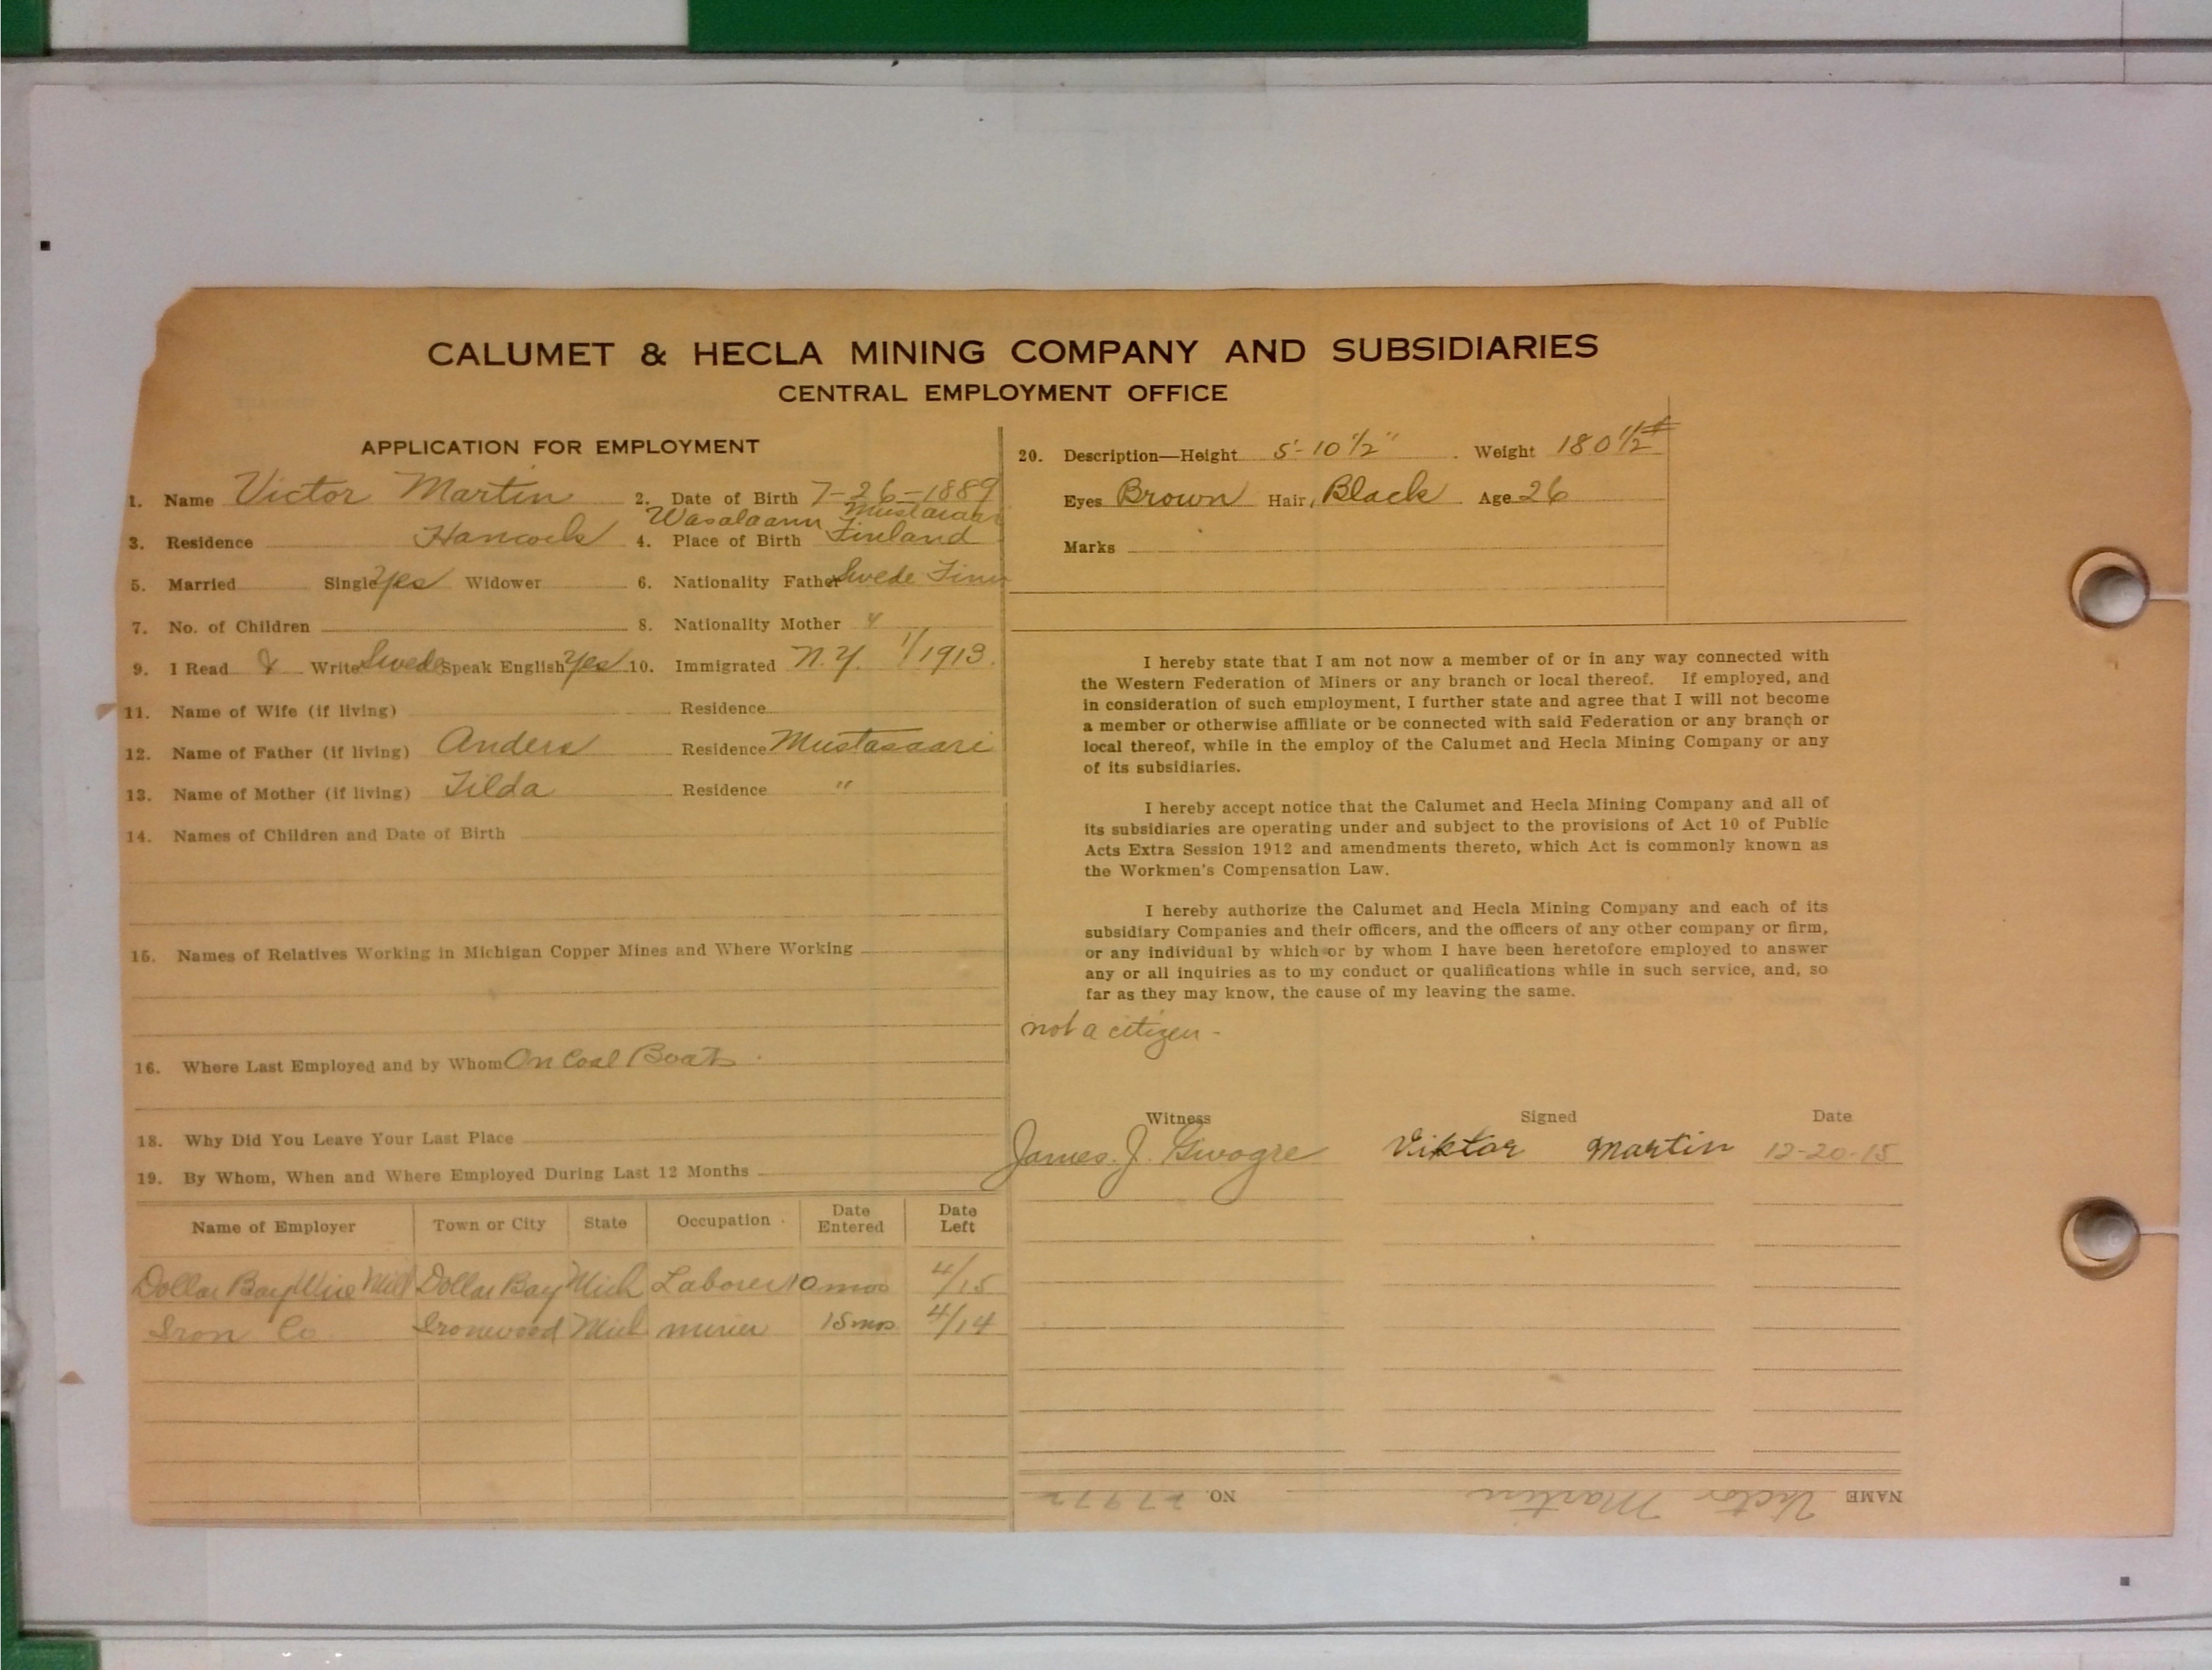 CALUMET & HECLA MINING COMPANY AND SUBSIDIARIES
CENTRAL EMPLOYMENT OFFICE
APPLICATION FOR EMPLOYMENT
1. Name Victor Martin 2. Date of Birth 7-26-1889
Wasalaann Mustasaari
3. Residence Hancock 4. Place of Birth Finland
5. Married Single yes Widower 6. Nationality Father Swede Finn
7. No. of Children 8. Nationality Mother "
9. I Read & Write Swede Speak English Yes 10. Immigrated N.Y. 1/1913.
11. Name of Wife (if living) Residence
12. Name of Father (if living) Anders Residence Mustasaari
13. Name of Mother (if living) Tilda Residence "
14. Names of Children and Date of Birth
15. Names of Relatives Working in Michigan Copper Mines and Where Working
16. Where Last Employed and by Whom On Coal Boats.
18. Why Did You Leave Your Last Place
19. By Whom, When and Where Employed During Last 12 Months
Name of Employer Town or City State Occupation Date Entered Date Left
Dollar Bay Wire Mill Dollar Bay Mich Laborer 10 mos 4/15
Iron Co Ironwood Mich miner 15 mos 4/14
20. Description—Height 5'-10 1/2" . Weight 180 1/2 #
Eyes Brown Hair, Black Age 26
Marks
I hereby state that I am not now a member of or in any way connected with
the Western Federation of Miners or any branch or local thereof. If employed, and
in consideration of such employment, I further state and agree that I will not become
a member or otherwise affiliate or be connected with said Federation or any branch or
local thereof, while in the employ of the Calumet and Hecla Mining Company or any
of its subsidiaries.
I hereby accept notice that the Calumet and Hecla Mining Company and all of
its subsidiaries are operating under and subject to the provisions of Act 10 of Public
Acts Extra Session 1912 and amendments thereto, which Act is commonly known as
the Workmen's Compensation Law.
I hereby authorize the Calumet and Hecla Mining Company and each of its
subsidiary Companies and their officers, and the officers of any other company or firm,
or any individual by which or by whom I have been heretofore employed to answer
any or all inquiries as to my conduct or qualifications while in such service, and, so
far as they may know, the cause of my leaving the same.
not a citizen -
Witness Signed Date
James. J. Viktor Martin 12-20-15
NAME Victor Martin NO.